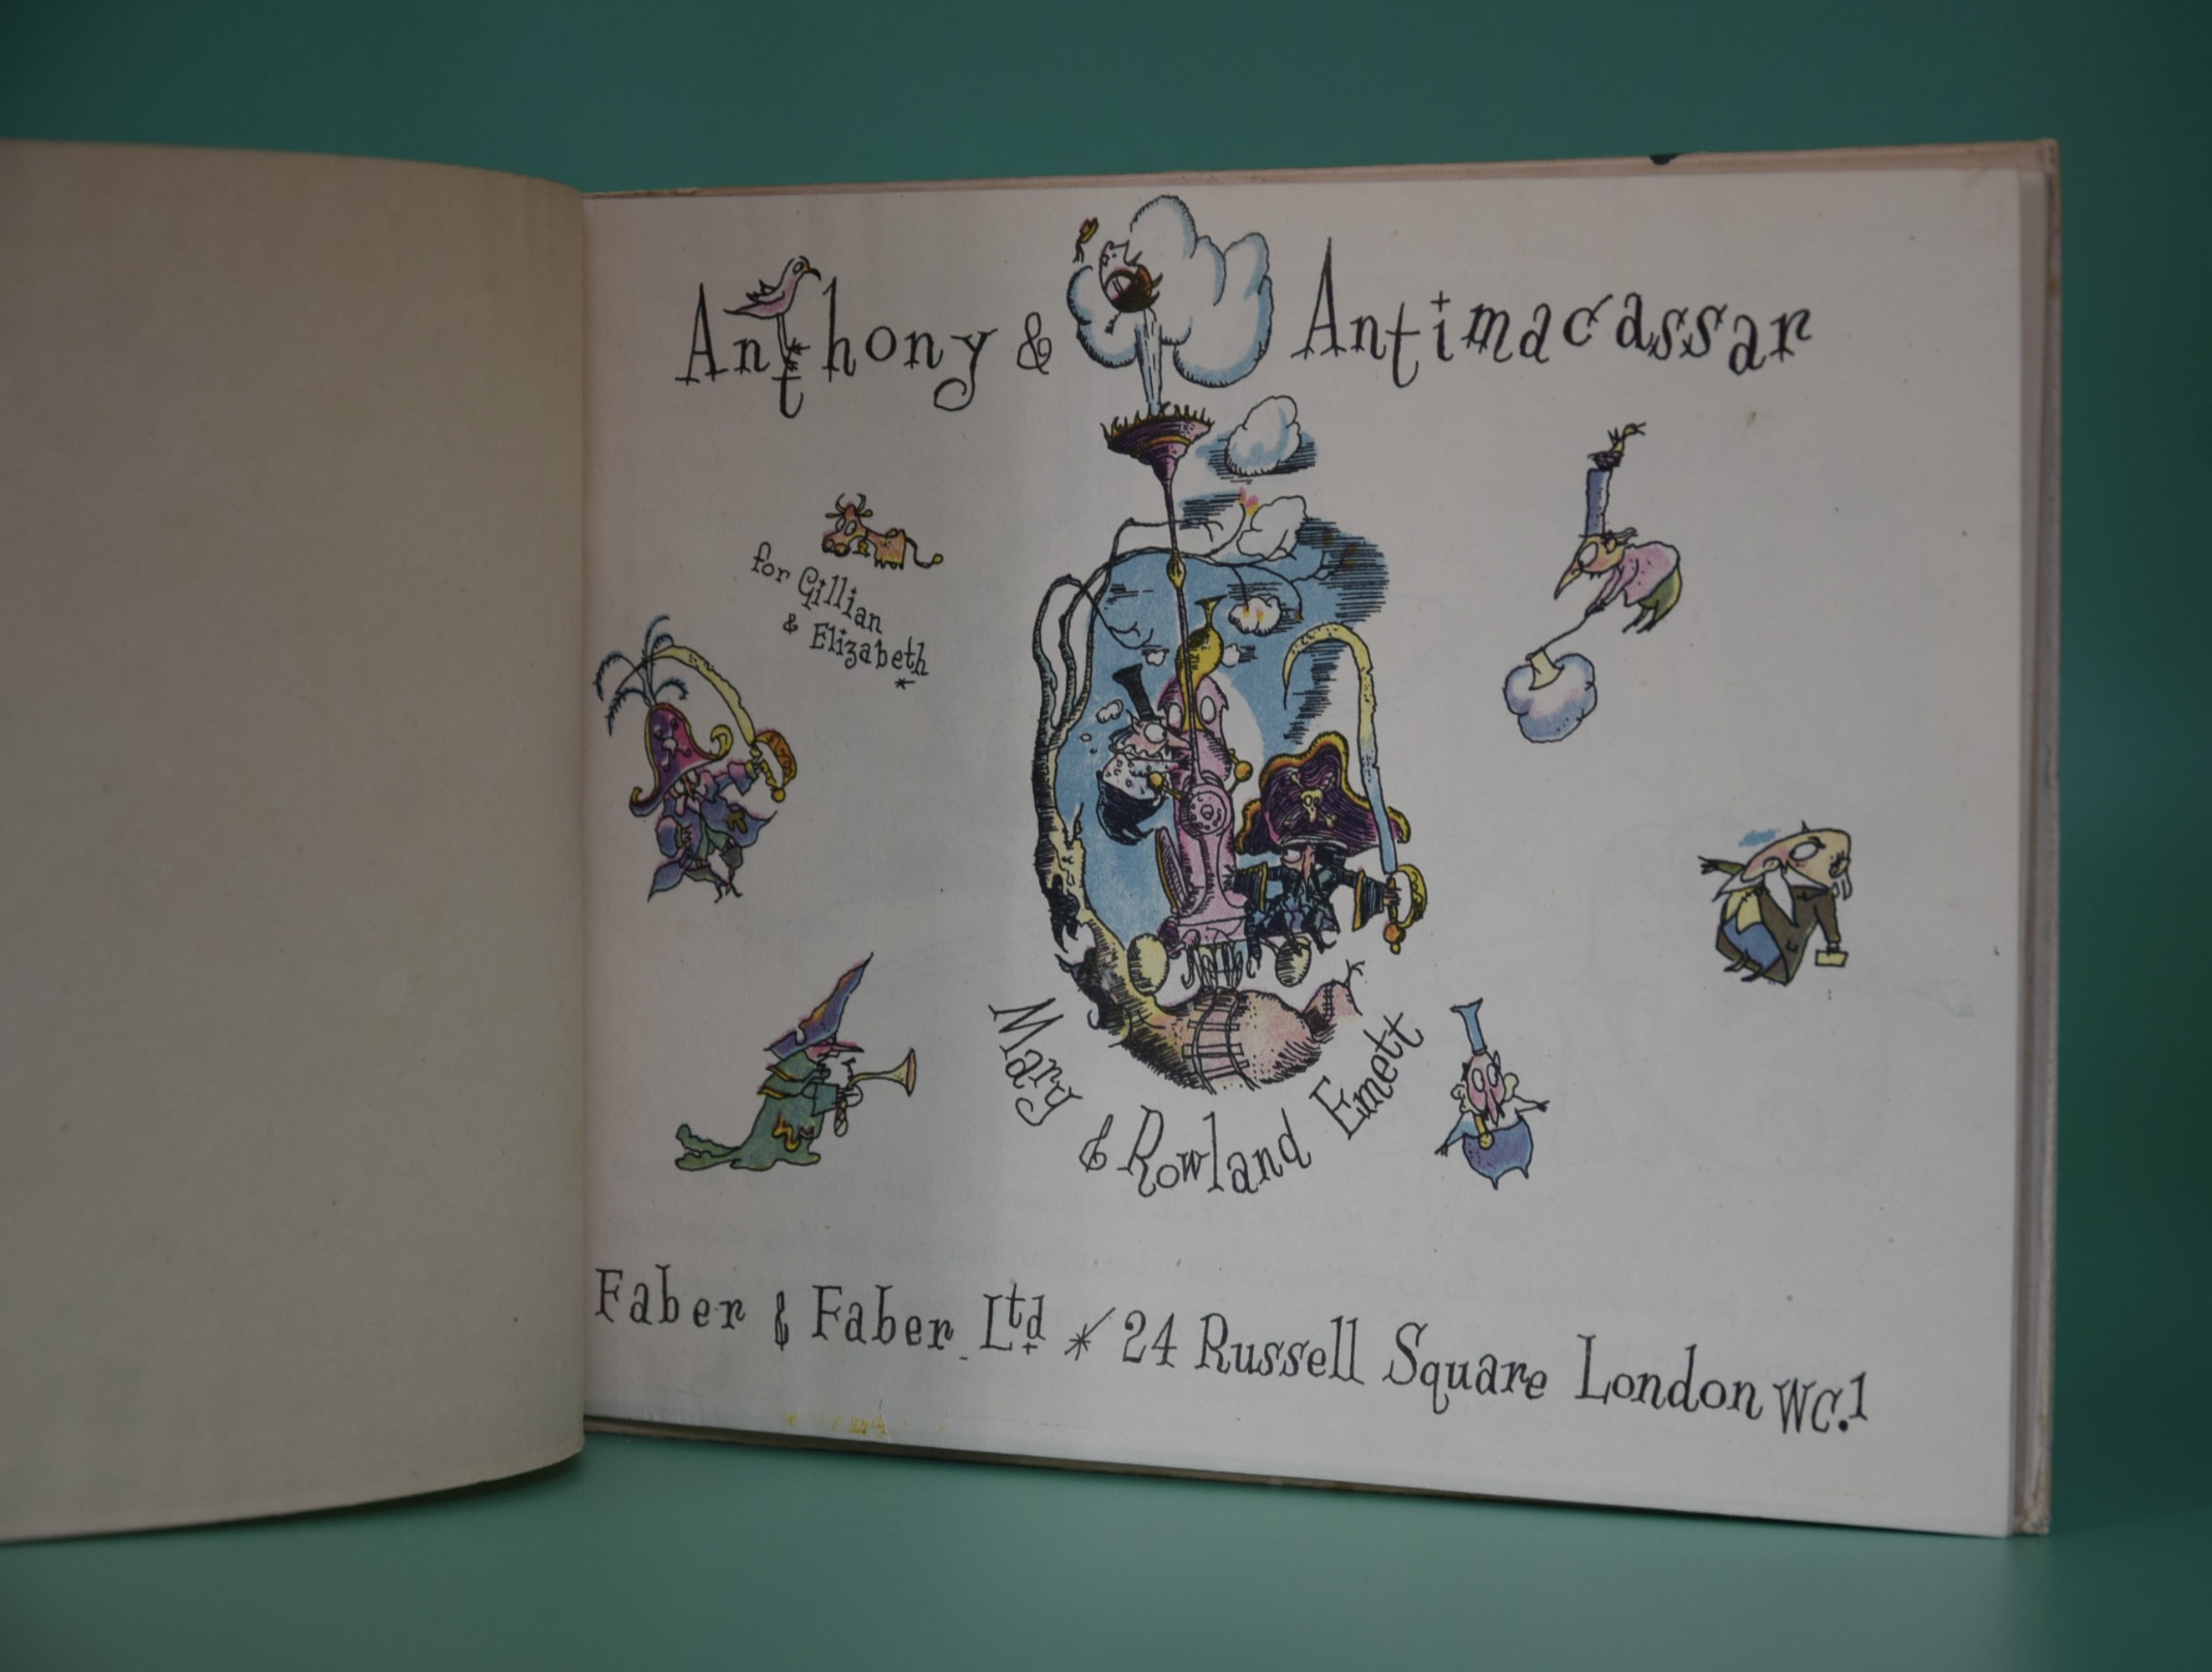 Anthony & Antimacassar
for Gillian
& Elizabeth
Mary & Rowland Emett
Faber & Faber Ltd * 24 Russell Square London WC.1